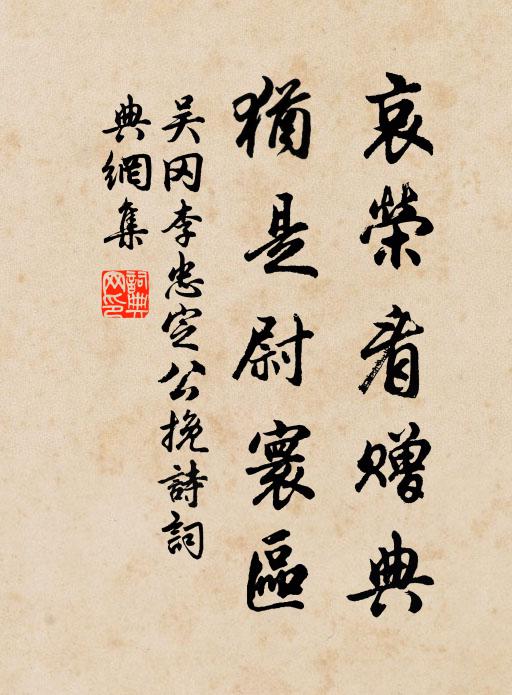 哀榮看贈典
猶是尉寰區
吴冈李忠定公挽詩詞
典網集
詞典网印